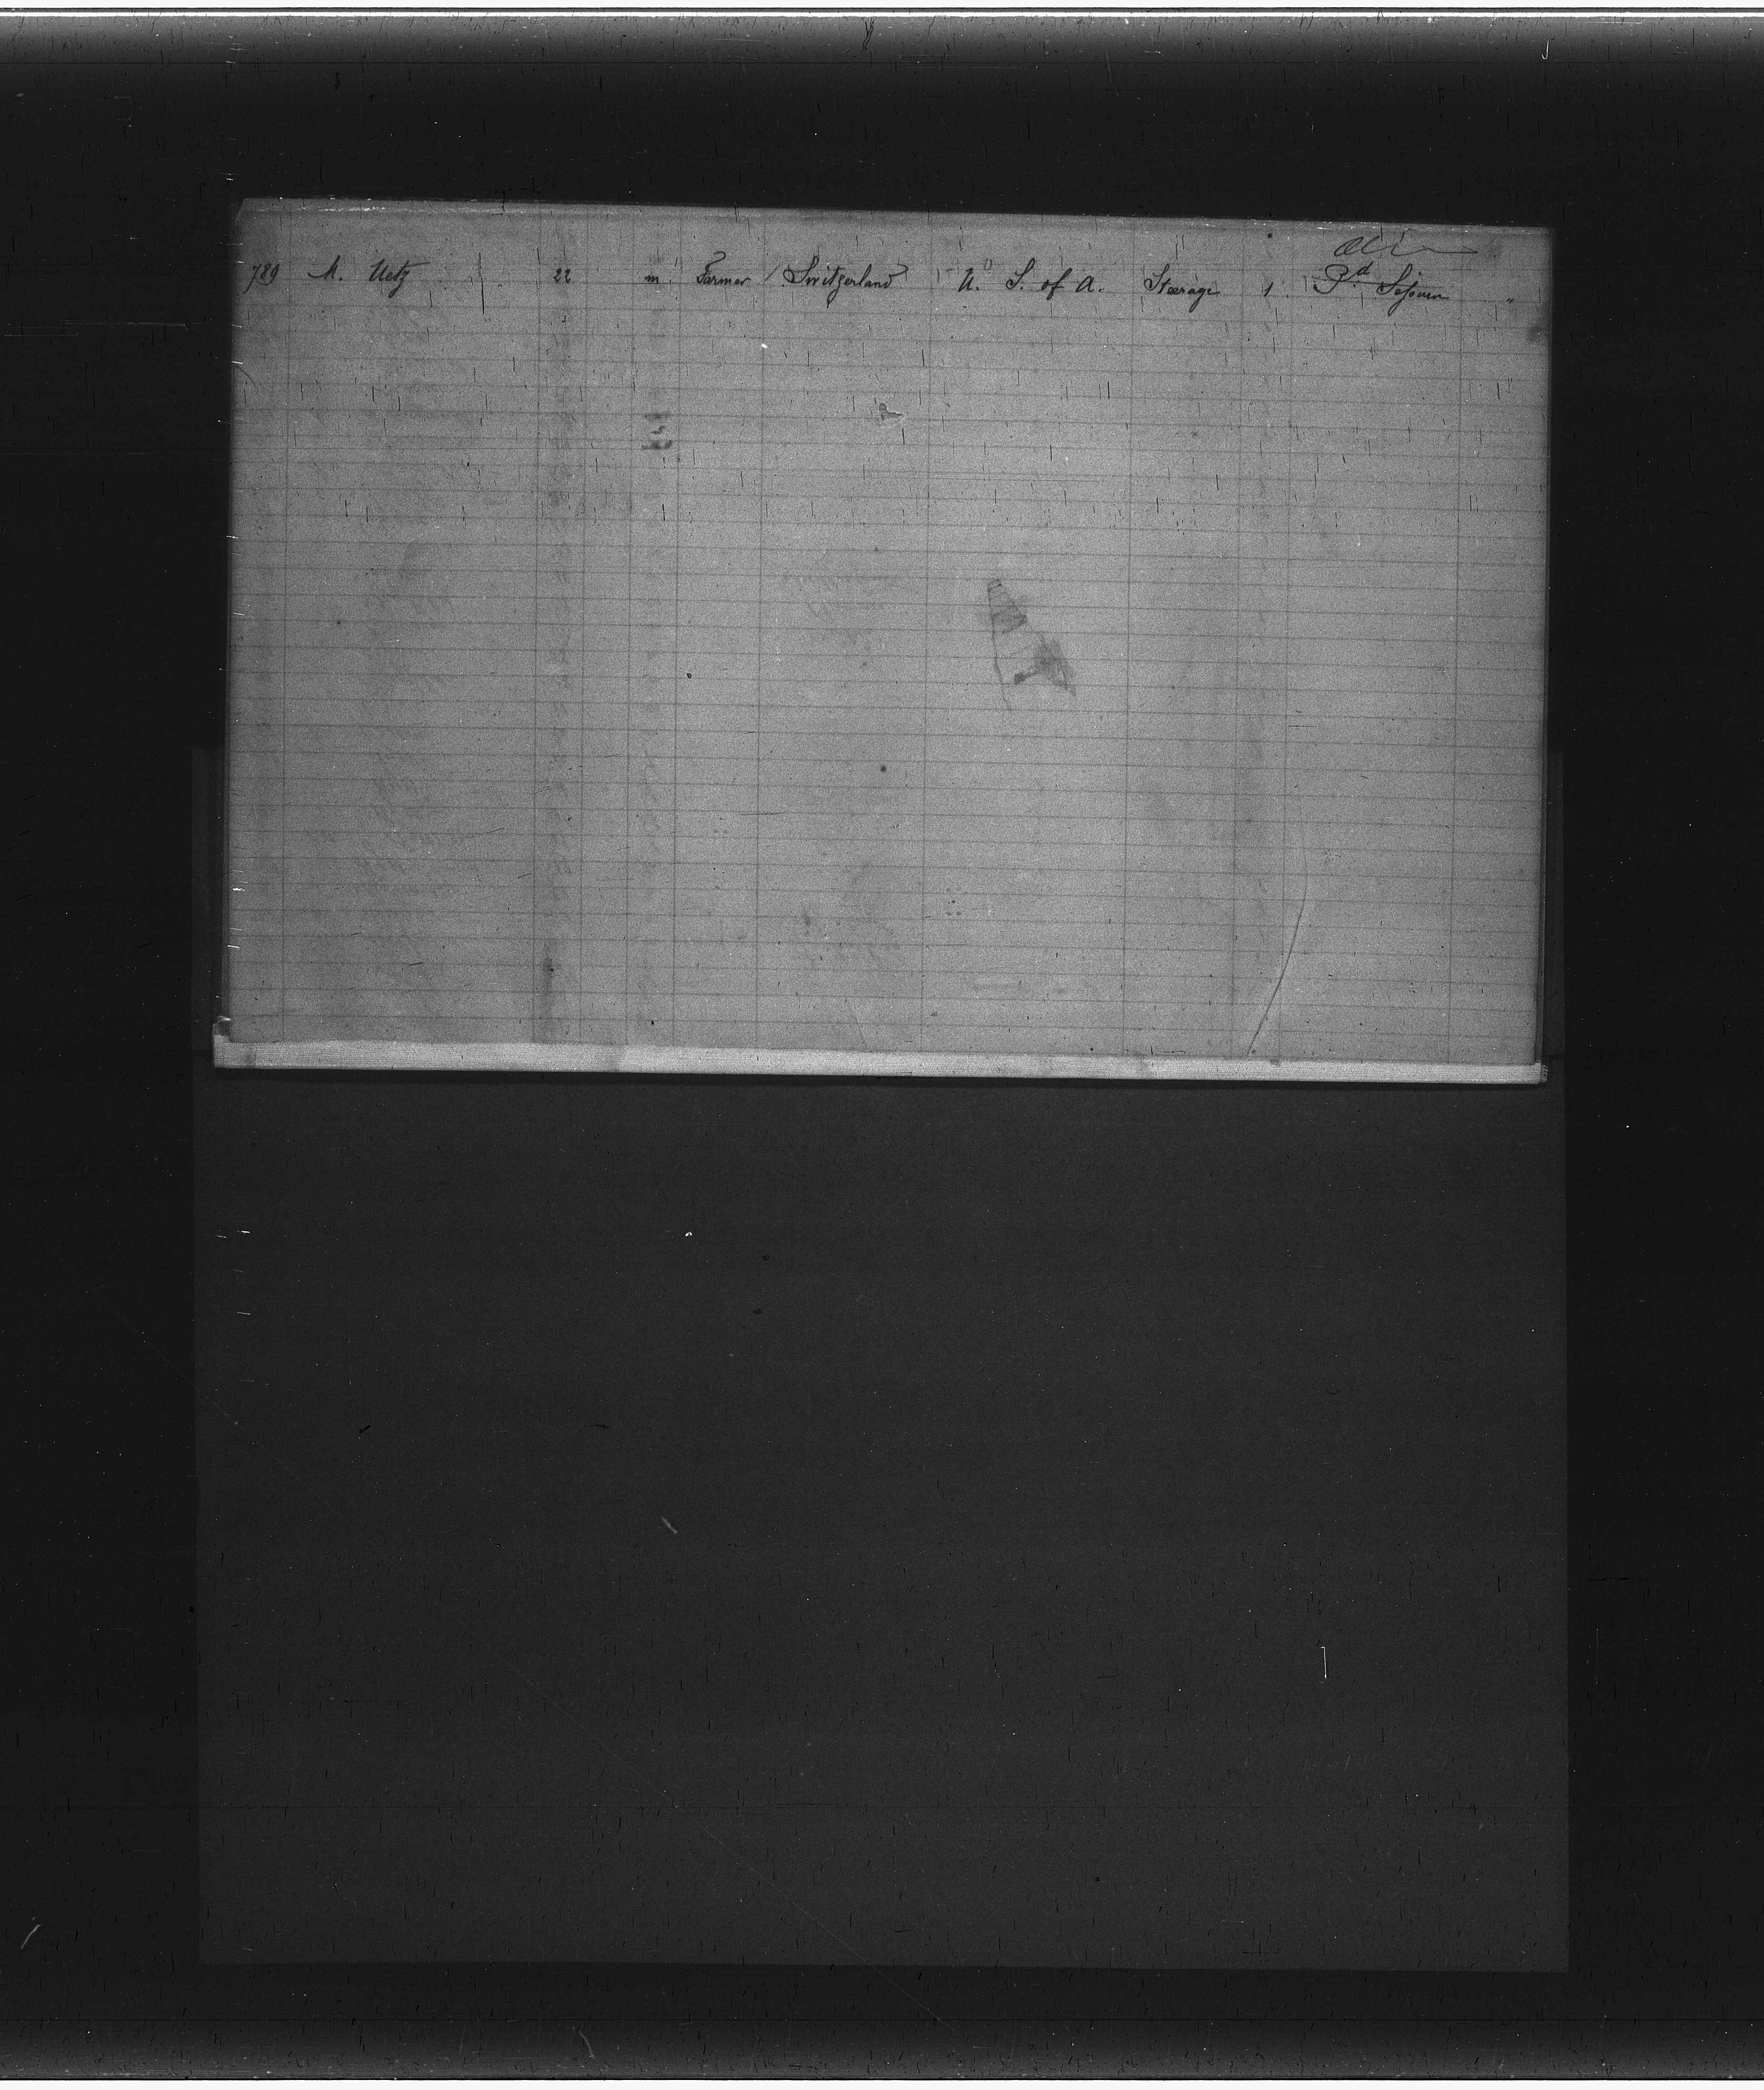 789 M. Uetz 22 m Farmer Switzerland U. S. of A. Steerage 1 Pd Sojourn "